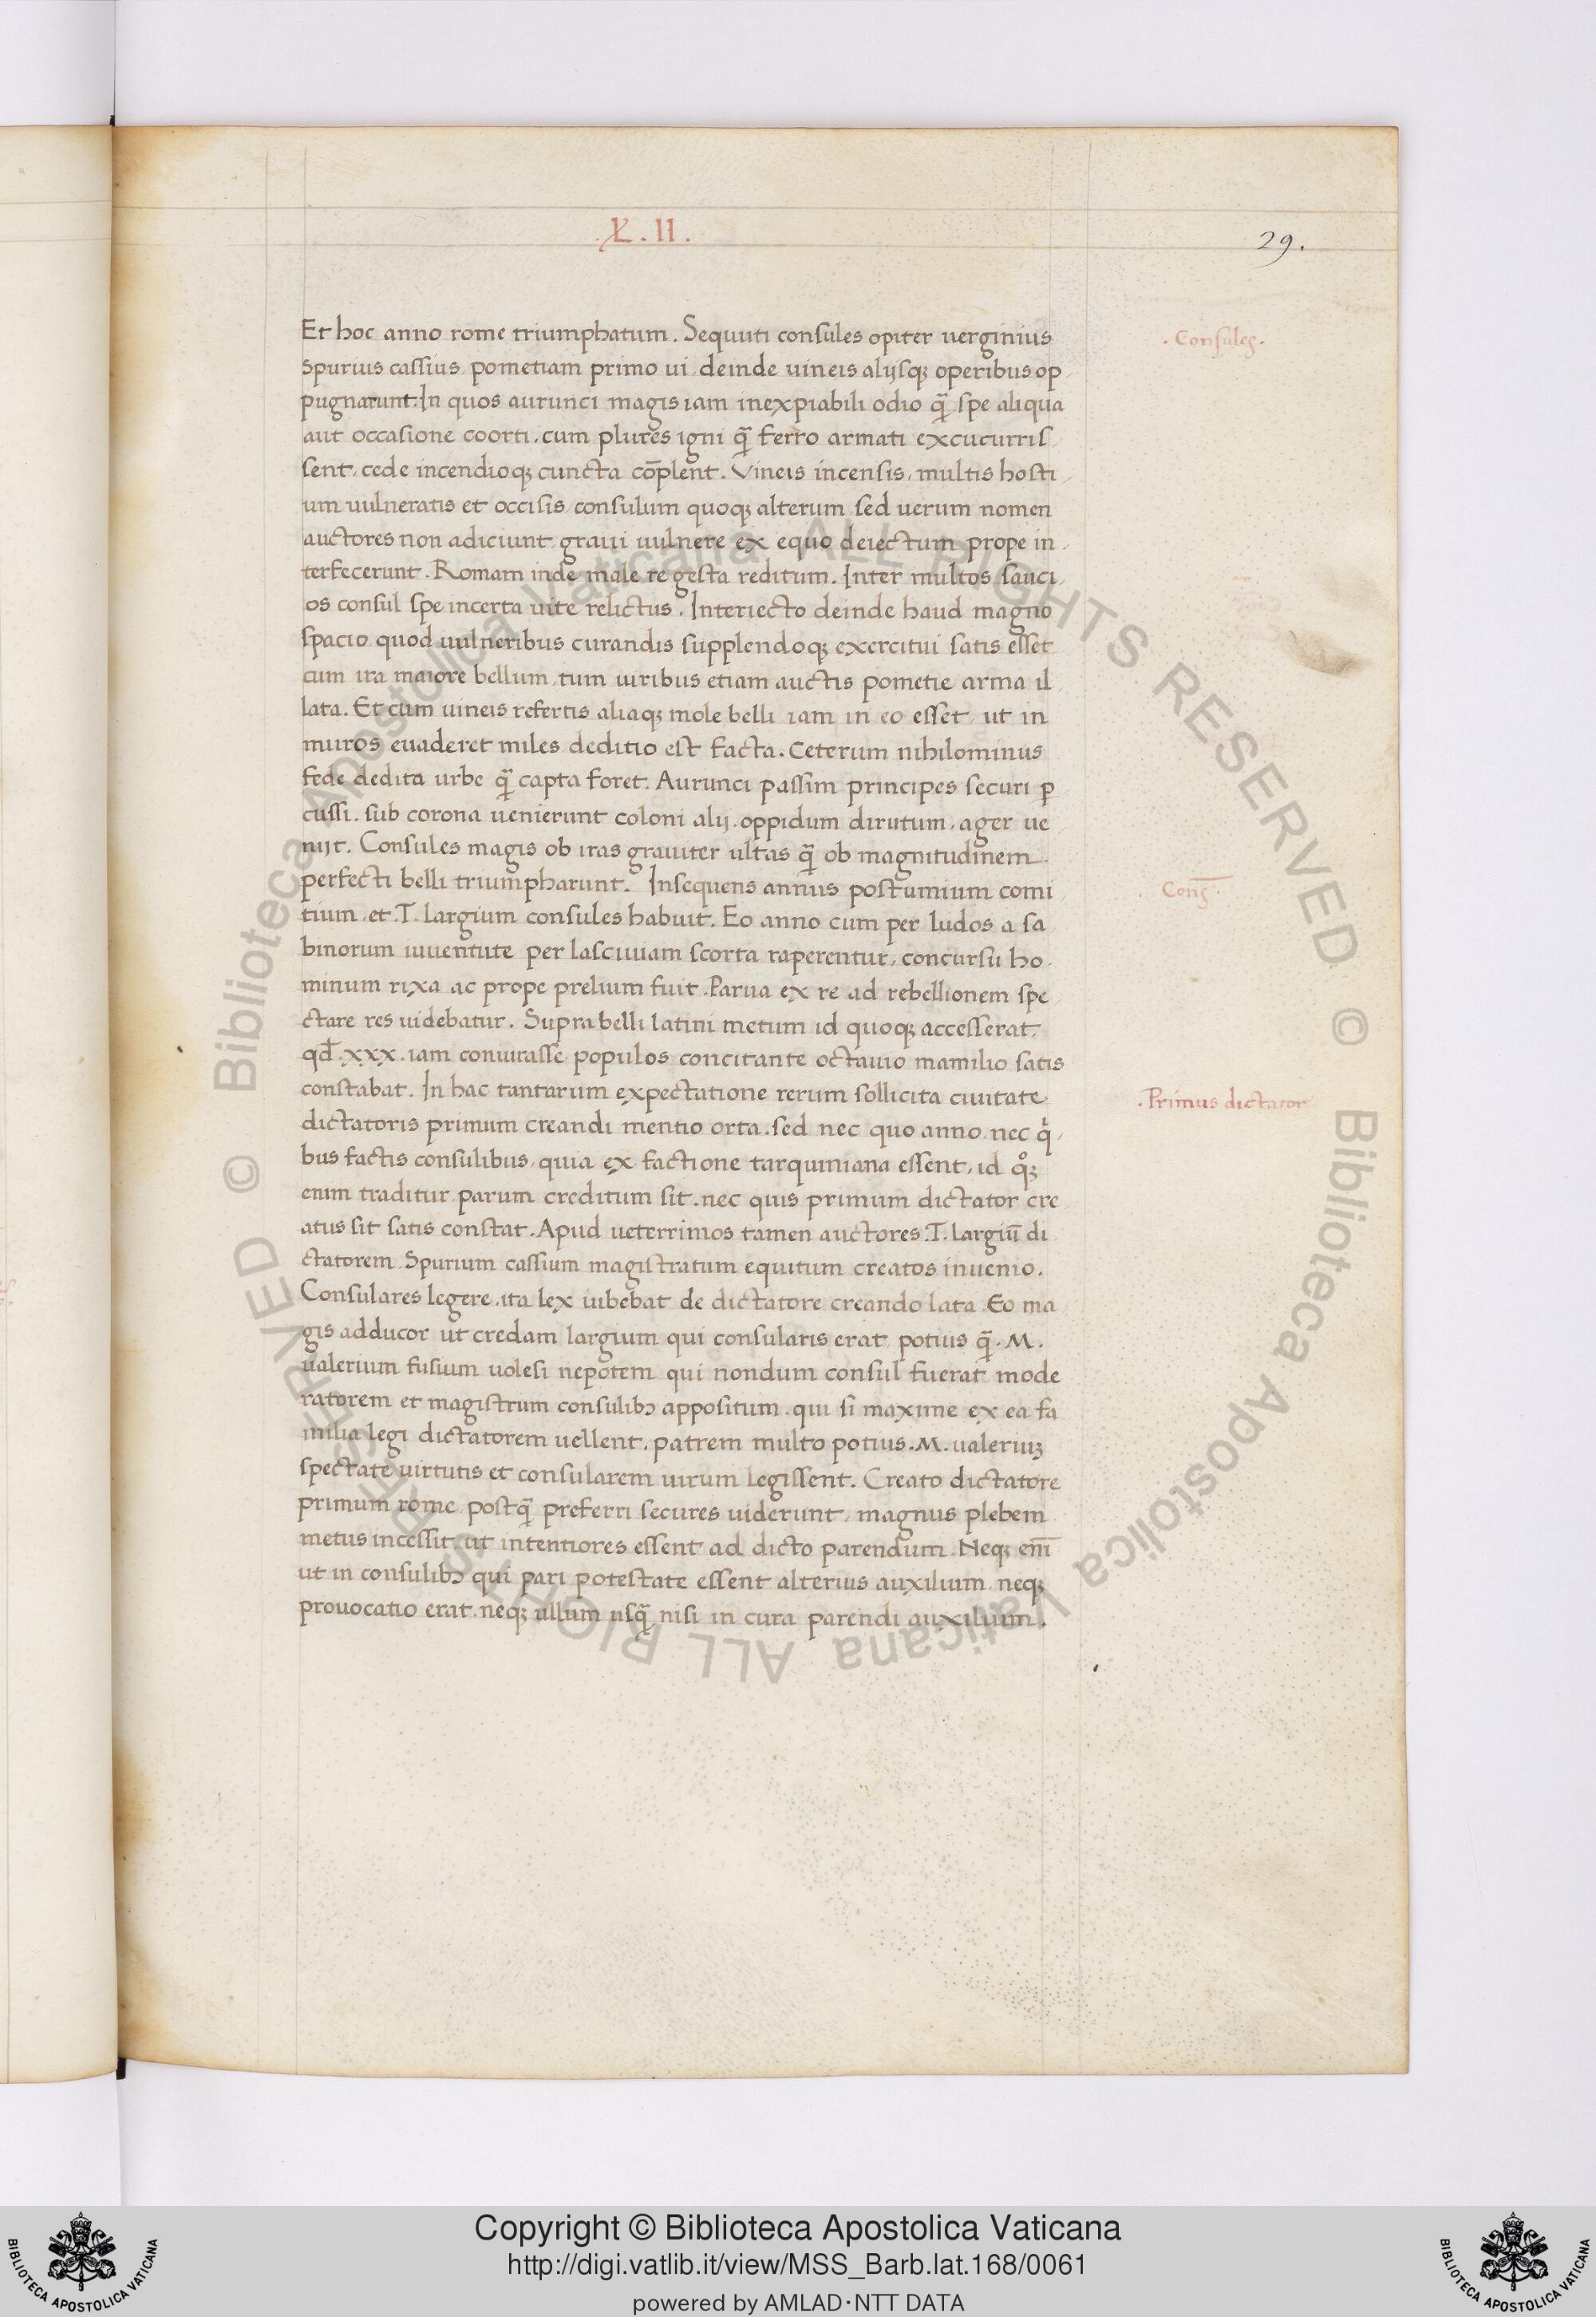 L.II.
29.
Et hoc anno rome triumphatum. Sequuti consules opiter uerginius
.Consules.
Spurius cassius, pometiam primo ui, deinde uineis alijsqꝫ operibus op
pugnarunt. In quos aurunci magis iam inexpiabili odio q̄ spe aliqua
aut occasione coorti, cum plures igni q̄ ferro armati excucurris
sent, cede incendioqꝫ cuncta cōplent. Vineis incensis, multis hosti
um uulneratis et occisis, consulum quoqꝫ alterum sed uerum nomen
auctores non adiciunt, graui uulnere ex equo deiectum prope in
terfecerunt. Romam inde male re gesta reditum. Inter multos sauci
os consul spe incerta uite relictus. Interiecto deinde haud magno
spacio quod uulneribus curandis supplendoqꝫ exercitui satis esset
cum ira maiore bellum, tum uiribus etiam auctis pometie arma il
lata. Et cum uineis refertis aliaqꝫ mole belli iam in eo esset, ut in
muros euaderet miles deditio est facta. Ceterum nihilominus
fede dedita urbe q̄ capta foret. Aurunci passim principes securi ꝑ
cussi. sub corona uenierunt coloni alij. oppidum dirutum, ager ue
nijt. Consules magis ob iras grauiter ultas q̄ ob magnitudinem
perfecti belli triumpharunt. Insequens annus postumium comi
.Cons̄.
tium, et .T. largium consules habuit. Eo anno cum per ludos a sa
binorum iuuentute per lasciuiam scorta raperentur, concursu ho
minum rixa ac prope prelium fuit. Parua ex re ad rebellionem spe
ctare res uidebatur. Supra belli latini metum id quoqꝫ accesserat,
qđ .xxx. iam coniurasse populos concitante octauio mamilio satis
constabat. In hac tantarum expectatione rerum sollicita ciuitate
.Primus dictator
dictatoris primum creandi mentio orta. sed nec quo anno, nec qi
bus factis consulibus, quia ex factione tarquiniana essent, id qoꝫ
enim traditur parum creditum sit. nec quis primum dictator cre
atus sit satis constat. Apud ueterrimos tamen auctores .T. largiū di
ctatorem Spurium cassium magistratum equitum creatos inuenio.
Consulares legere, ita lex iubebat de dictatore creando lata. Eo ma
gis adducor ut credam largium qui consularis erat potius q̄ .M.
ualerium fusium uolesi nepotem qui nondum consul fuerat mode
ratorem et magistrum consulibꝫ appositum. qui si maxime ex ea fa
milia legi dictatorem uellent, patrem multo potius .M. ualeriuꝫ
spectate uirtutis et consularem uirum legissent. Creato dictatore
primum rome, postq̄ preferri secures uiderunt, magnus plebem
metus incessit, ut intentiores essent ad dicto parendum. Neqꝫ enī
ut in consulibꝫ qui pari potestate essent alterius auxilium neqꝫ
prouocatio erat. neqꝫ ullum usq̄ nisi in cura parendi auxilium.
© Biblioteca Apostolica Vaticana ALL RIGHTS RESERVED © Biblioteca Apostolica Vaticana ALL RIGHTS RESERVED
Copyright © Biblioteca Apostolica Vaticana
http://digi.vatlib.it/view/MSS_Barb.lat.168/0061
powered by AMLAD·NTT DATA
BIBLIOTECA APOSTOLICA VATICANA
BIBLIOTECA APOSTOLICA VATICANA